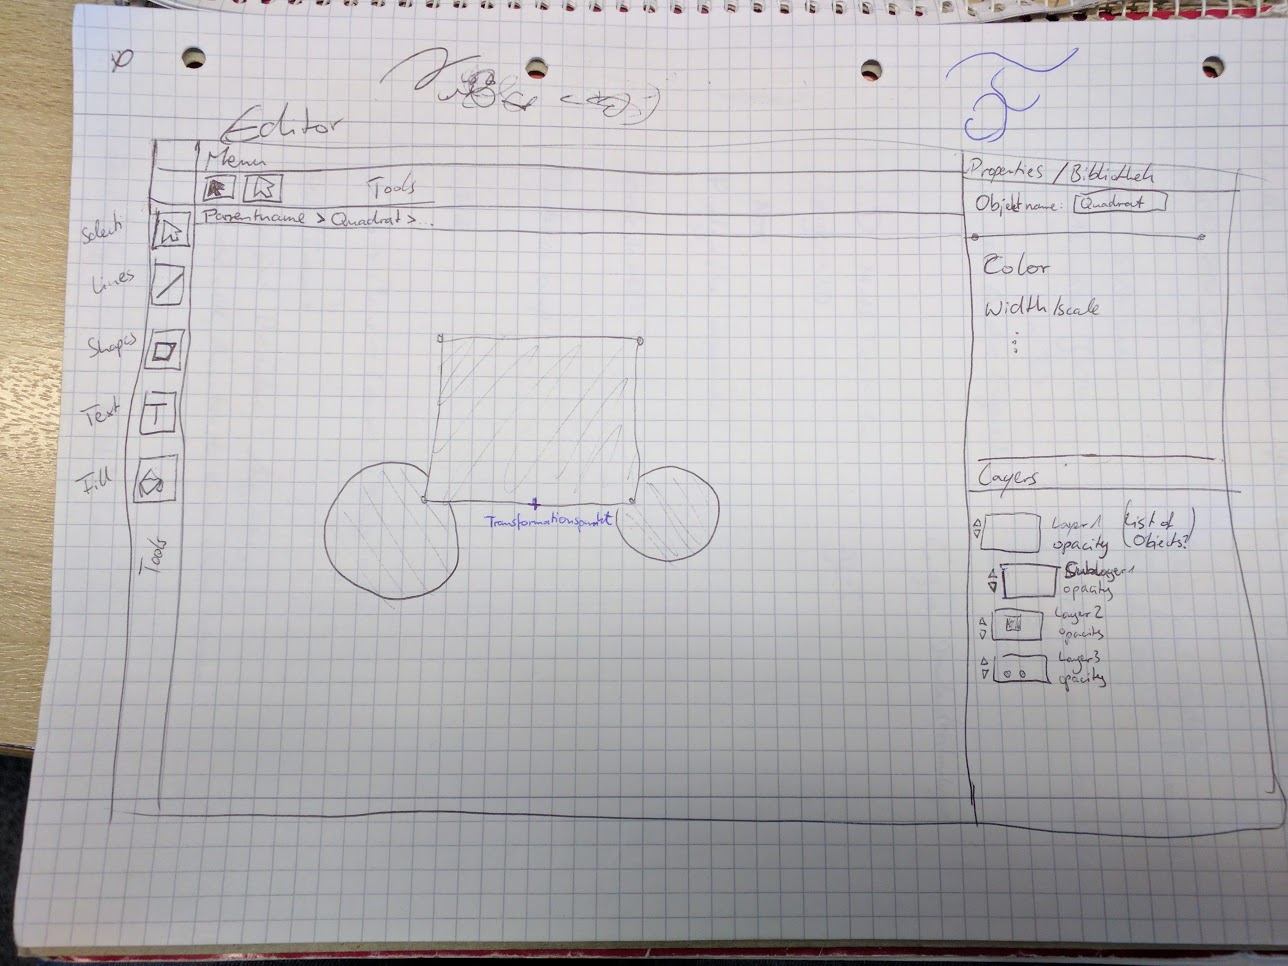 Editor
Menu
Tools
Parentname > Quadrat > ...
Select
Lines
Shapes
Text
T
Fill
Tools
Transformationspunkt
Properties / Bibliothek
Objektname: Quadrat
Color
Width/scale
Layers
Layer 1
opacity
(List of
Objects?)
Sublayer 1
opacity
Layer 2
opacity
Layer 3
opacity